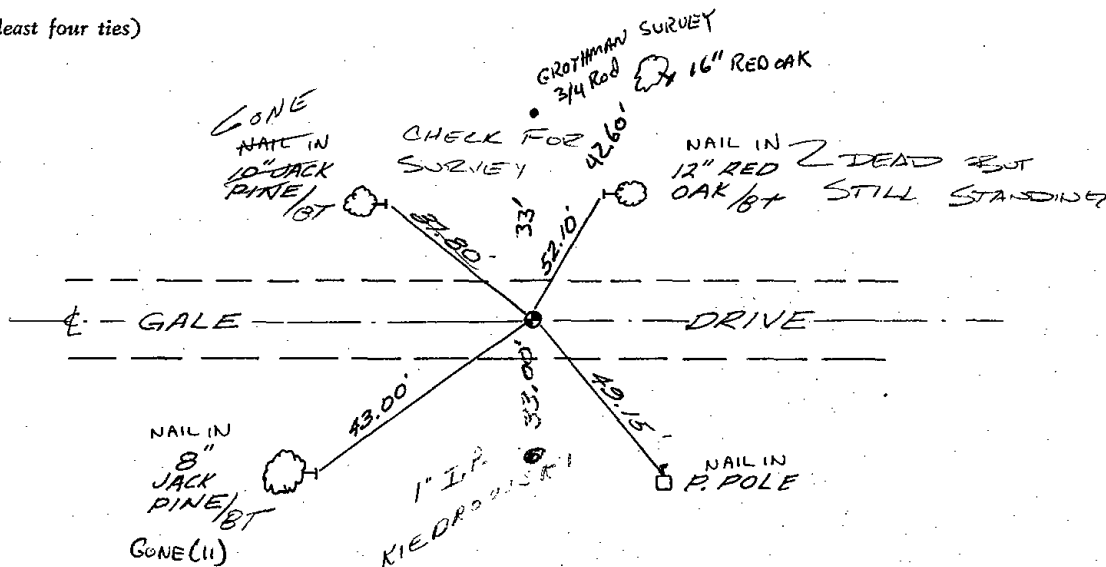 least four ties)
GROTHMAN SURVEY
3/4 Rod
16" RED OAK
42.60'
GONE
NAIL IN
10" JACK
PINE/BT
CHECK FOR
SURVEY
NAIL IN
12" RED
OAK/BT
DEAD BUT
STILL STANDING
37.80'
33'
52.10'
℄ GALE DRIVE
43.00'
33.00'
49.15'
NAIL IN
8"
JACK
PINE/BT
GONE (11)
1" I.P.
KIEDROWSKI
NAIL IN
P. POLE